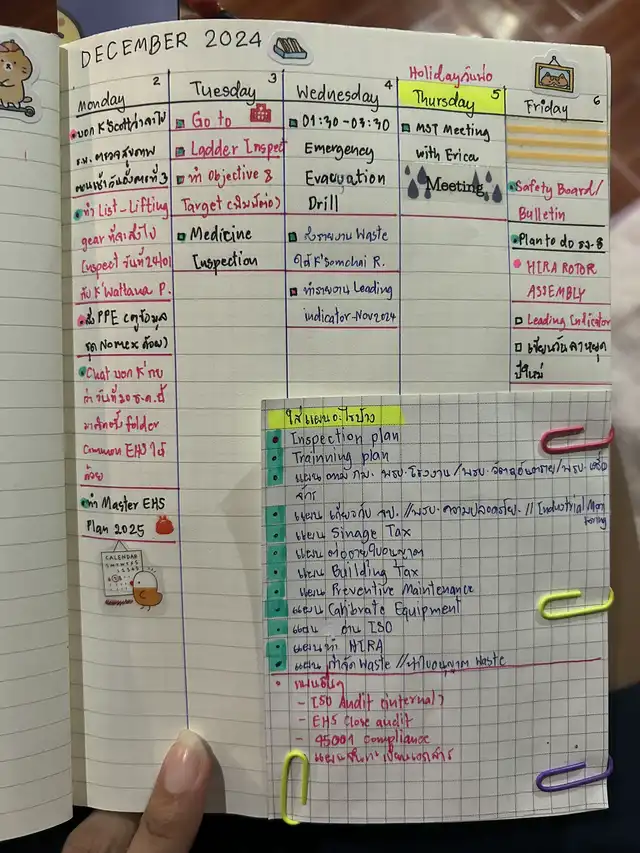 DECEMBER 2024
Monday 2
บอก K'Scottว่าเราไป
รพ. ตรวจสุขภาพ
ตอนเช้าวันอังคารที่ 3
ทำ List-Lifting
gear ที่จะส่งไป
Inspect วันที่
กับ K'Wattana P.
สั่ง PPE (ดูข้อมูล
ชุด Nomex ด้วย)
Chat บอก K'
ว่าวันที่ 20 ธ.ค. นี้
folder
Common EHS ให้
ด้วย
ทำ Master EHS
Plan 2025
CALENDAR
Tuesday 3
Go to
Ladder Inspect
ทำ Objective &
Target
Medicine
Inspection
Wednesday 4
01:30-03:30
Emergency
Evacuation
Drill
ส่งรายงาน Waste
ให้ K'Somchai R.
ทำรายงาน Leading
indicator-Nov2024
Holidayวันพ่อ
Thursday 5
MST Meeting
with Erica
Meeting
Friday 6
Safety Board/
Bulletin
Plan to do
HIRA ROTOR
ASSEMBLY
Leading Indicator
เขียนวันลาหยุด
ปีใหม่
ใส่แผนอะไรบ้าง
Inspection plan
Trainning plan
แผนตาม กม. พรบ.โรงงาน/พรบ.วัตถุอันตราย/พรบ.เครื่อ
จักร
แผน เกี่ยวกับ จป. //พรบ.ความปลอดภัย. // Industrial Mon
itoring
แผน Sinage Tax
แผน ต่ออายุใบอนุญาต
แผน Building Tax
แผน Preventive Maintenance
แผน Calibrate Equipment
แผน งาน ISO
แผนทำ HIRA
แผน กำจัด Waste //ทำใบอนุญาต Waste
แผนอื่นๆ
- ISO Audit (internal)
- EHS Close audit
- 45001 compliance
- แผนขึ้นทะเบียนเอกสาร